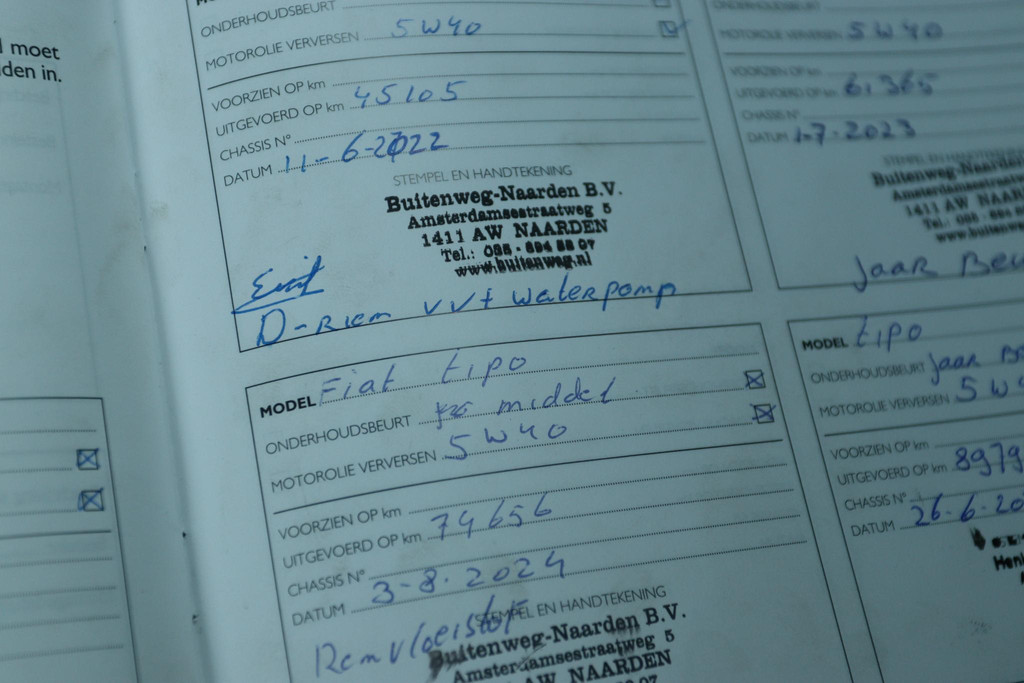 moet
den in.
ONDERHOUDSBEURT
MOTOROLIE VERVERSEN 5W40
VOORZIEN OP km
UITGEVOERD OP km 45105
CHASSIS N°
DATUM 11-6-2022
STEMPEL EN HANDTEKENING
Buitenweg-Naarden B.V.
Amsterdamsestraatweg 5
1411 AW NAARDEN
Tel.: 035 - 694 58 07
www.buitenweg.nl
D-Riem vvt waterpomp
ONDERHOUDSBEURT
MOTOROLIE VERVERSEN 5W40
VOORZIEN OP km
UITGEVOERD OP km 61365
CHASSIS N°
DATUM 1-7-2023
STEMPEL EN HANDTEKENING
Buitenweg-Naarden
Amsterdamsestraatweg
1411 AW NAAR
Tel.: 035 - 694
www.buitenweg
Jaar Beu
MODEL Fiat tipo
ONDERHOUDSBEURT middel
MOTOROLIE VERVERSEN 5W40
VOORZIEN OP km
UITGEVOERD OP km 74656
CHASSIS N°
DATUM 3-8-2024
STEMPEL EN HANDTEKENING
Remvloeistof
Buitenweg-Naarden B.V.
Amsterdamsestraatweg 5
AW NAARDEN
MODEL tipo
ONDERHOUDSBEURT Jaar B
MOTOROLIE VERVERSEN 5W
VOORZIEN OP km
UITGEVOERD OP km 8979
CHASSIS N°
DATUM 26-6-20